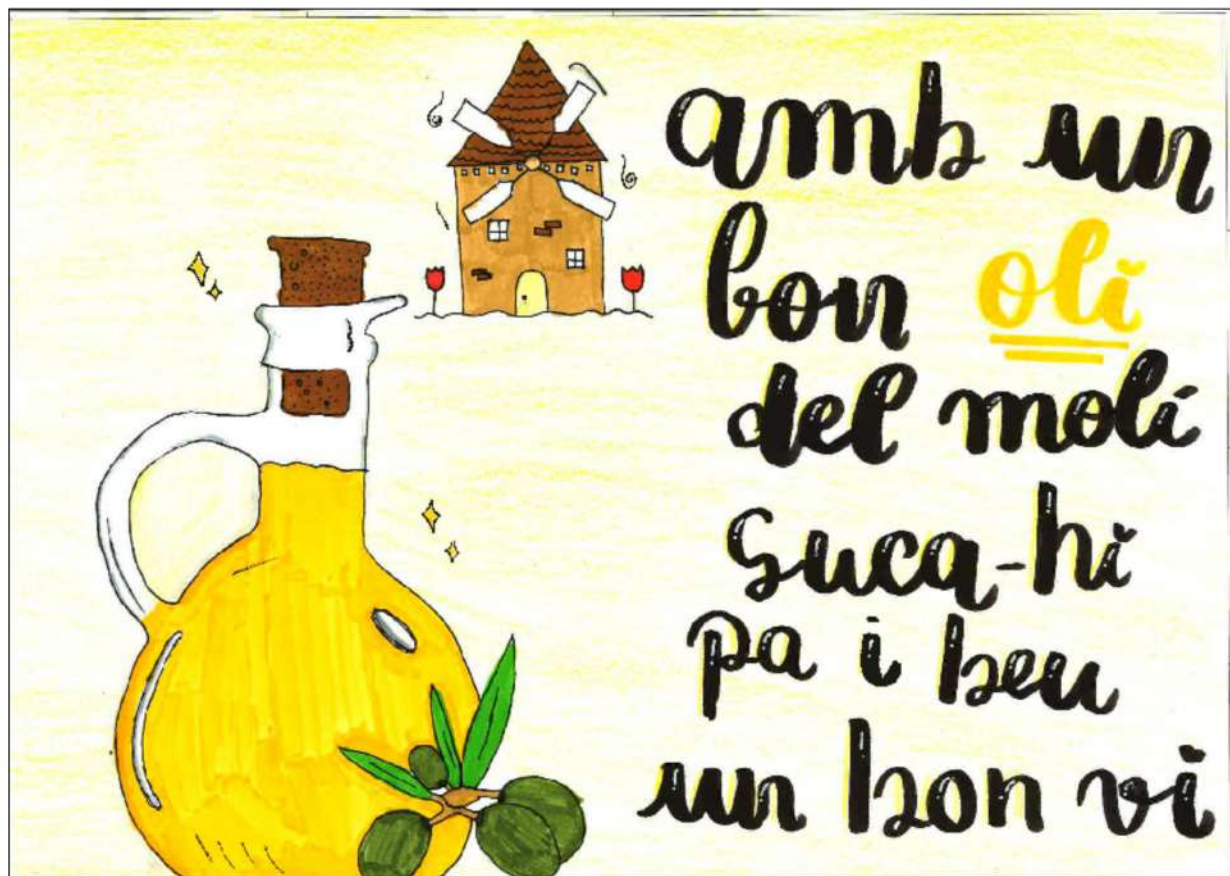 amb un
bon oli
del molí
suca-hi
pa i beu
un bon vi